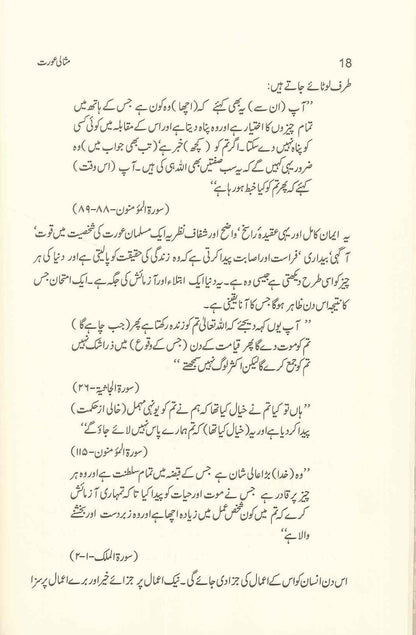 18 مثالی عورت
طرف لوٹائے جاتے ہیں:
’’آپ (ان سے) یہ بھی کہئے کہ (اچھا) وہ کون ہے جس کے ہاتھ میں
تمام چیزوں کا اختیار ہے اور وہ پناہ دیتا ہے اور اس کے مقابلہ میں کوئی کسی
کو پناہ نہیں دے سکتا۔ اگر تم کو (کچھ) خبر ہے‘ (تب بھی جواب میں) وہ
ضرور یہی کہیں گے کہ یہ سب صفتیں بھی اللہ ہی کی ہیں۔ آپ (اس وقت)
کہئے کہ پھر تم کو کیا خبط ہو رہا ہے‘‘
(سورۃ المؤمنون-۸۸-۸۹)
یہ ایمان کامل اور یہی عقیدہ راسخ‘ واضح اور شفاف نظریہ ایک مسلمان عورت کی شخصیت میں قوت‘
آگہی‘ بیداری‘ فراست اور اصابت پیدا کرتی ہے کہ وہ زندگی کی حقیقت کو پالیتی ہے اور دنیا کی ہر
چیز کو اسی طرح دیکھتی ہے جیسی وہ ہے۔ یہ دنیا ایک ابتلاء اور آزمائش کی جگہ ہے۔ ایک امتحان جس
کا نتیجہ اس دن ظاہر ہوگا جس کا آنا یقینی ہے۔
’’آپ یوں کہہ دیجئے کہ اللہ تعالیٰ تم کو زندہ رکھتا ہے پھر (جب چاہے گا)
تم کو موت دے گا پھر قیامت کے دن (جس کے وقوع) میں ذرا شک نہیں
تم کو جمع کرے گا لیکن اکثر لوگ نہیں سمجھتے‘‘
(سورۃ الجاثیۃ-۲۶)
’’ہاں تو کیا تم نے خیال کیا تھا کہ ہم نے تم کو یونہی مہمل (خالی از حکمت)
پیدا کر دیا ہے اور یہ (خیال کیا تھا) کہ تم ہمارے پاس نہیں لائے جاؤ گے‘‘
(سورۃ المؤمنون-۱۱۵)
’’وہ (خدا) بڑا عالی شان ہے جس کے قبضہ میں تمام سلطنت ہے اور وہ ہر
چیز پر قادر ہے جس نے موت اور حیات کو پیدا کیا تاکہ تمہاری آزمائش
کرے کہ تم میں کون شخص عمل میں زیادہ اچھا ہے اور وہ زبردست اور بخشنے
والا ہے‘‘
(سورۃ الملک-۱-۲)
اس دن انسان کو اس کے اعمال کی جزا دی جائے گی۔ نیک اعمال پر جزائے خیر اور برے اعمال پر سزا